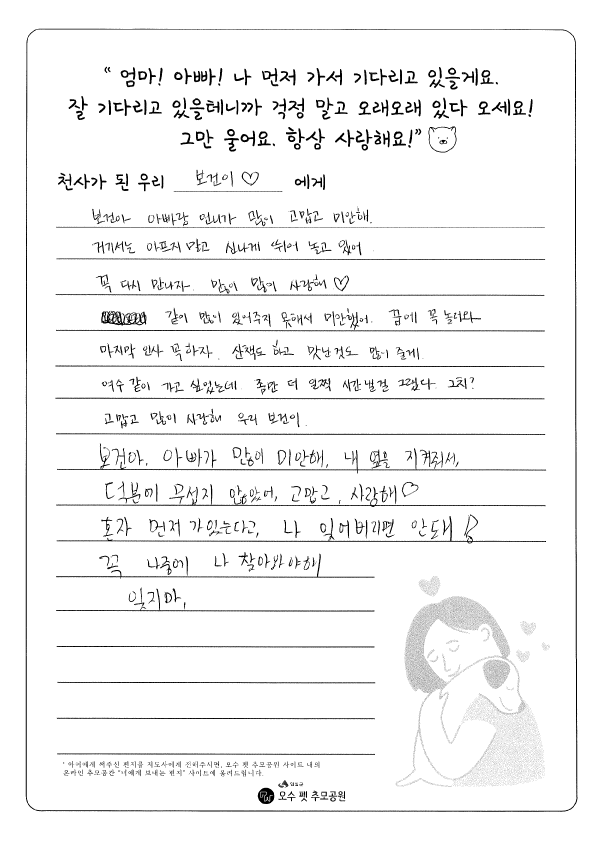 “ 엄마! 아빠! 나 먼저 가서 기다리고 있을게요.
잘 기다리고 있을테니까 걱정 말고 오래오래 있다 오세요!
그만 울어요. 항상 사랑해요!”
천사가 된 우리 보건이♡ 에게
보건아 아빠랑 언니가 많이 고맙고 미안해.
거기서는 아프지 말고 신나게 뛰어 놀고 있어
꼭 다시 만나자. 많이 많이 사랑해♡
같이 많이 있어주지 못해서 미안했어. 꿈에 꼭 놀러와
마지막 인사 꼭하자. 산책도 하고 맛난것도 많이 줄게.
여수 같이 가고 싶었는데 좀만 더 일찍 시간낼걸 그랬다. 그치?
고맙고 많이 사랑해 우리 보건이.
보건아. 아빠가 많이 미안해, 내 옆을 지켜줘서,
덕분에 무섭지 않았어, 고맙고, 사랑해♡
혼자 먼저 가있는다고, 나 잊어버리면 안돼!
꼭 나중에 나 찾아와야해
잊지마,
' 아이에게 써주신 편지를 지도사에게 전해주시면, 오수 펫 추모공원 사이트 내의
온라인 추모공간 "너에게 보내는 편지" 사이트에 올려드립니다.
임실군
오수 펫 추모공원